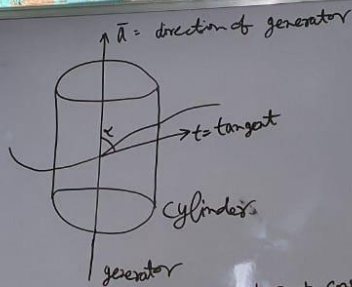 ā = direction of generator
α
t = tangent
cylinder.
generator